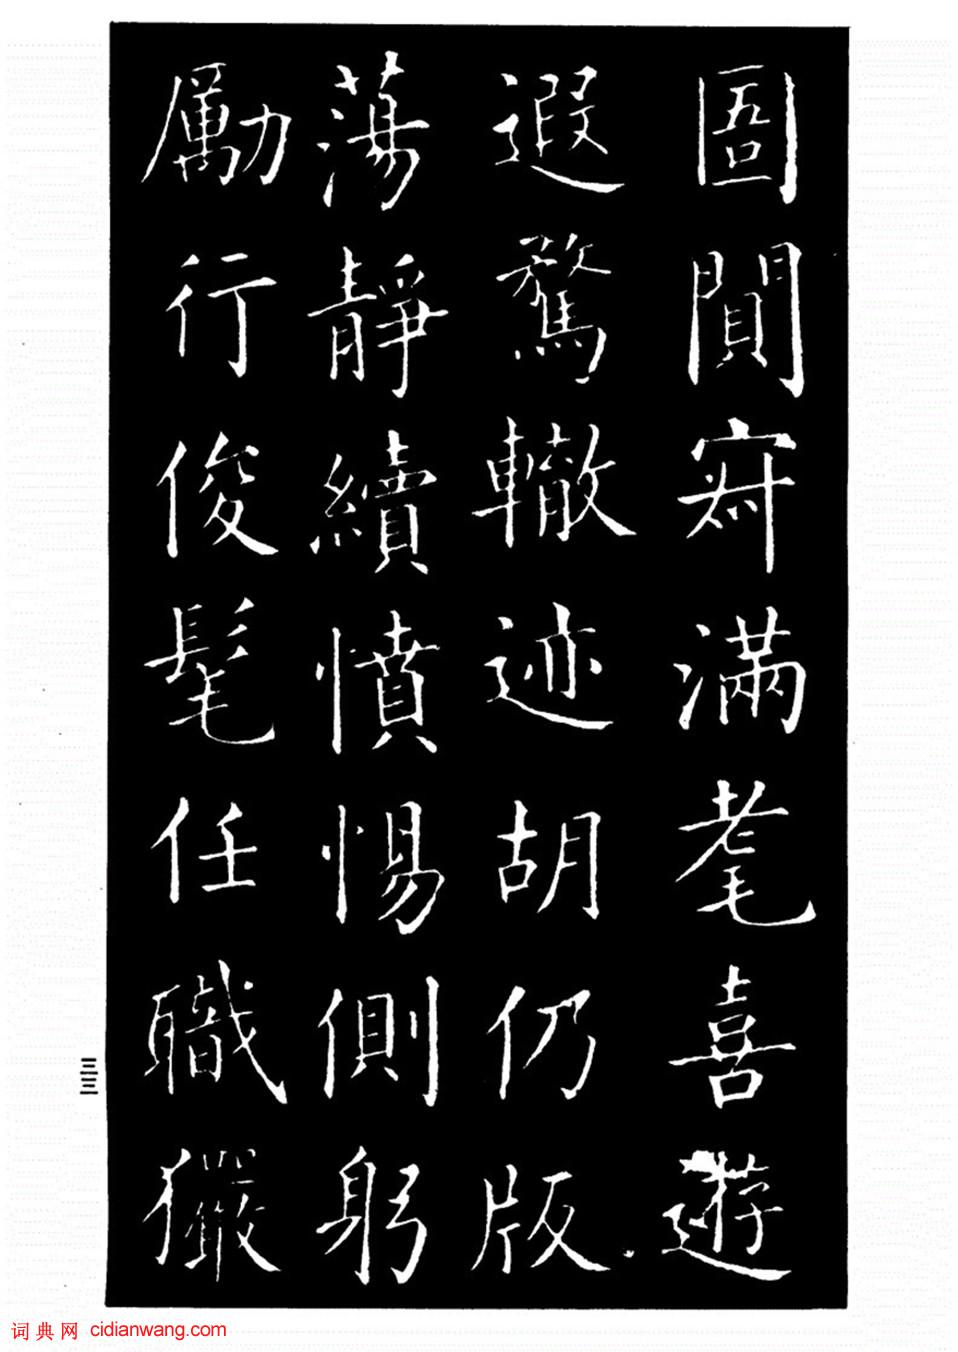 圄閴寂滿耄喜遊
遐騖轍迹胡仍版
蕩靜續憤惕側躬
勵行俊髦任職玁
三三
词典网 cidianwang.com